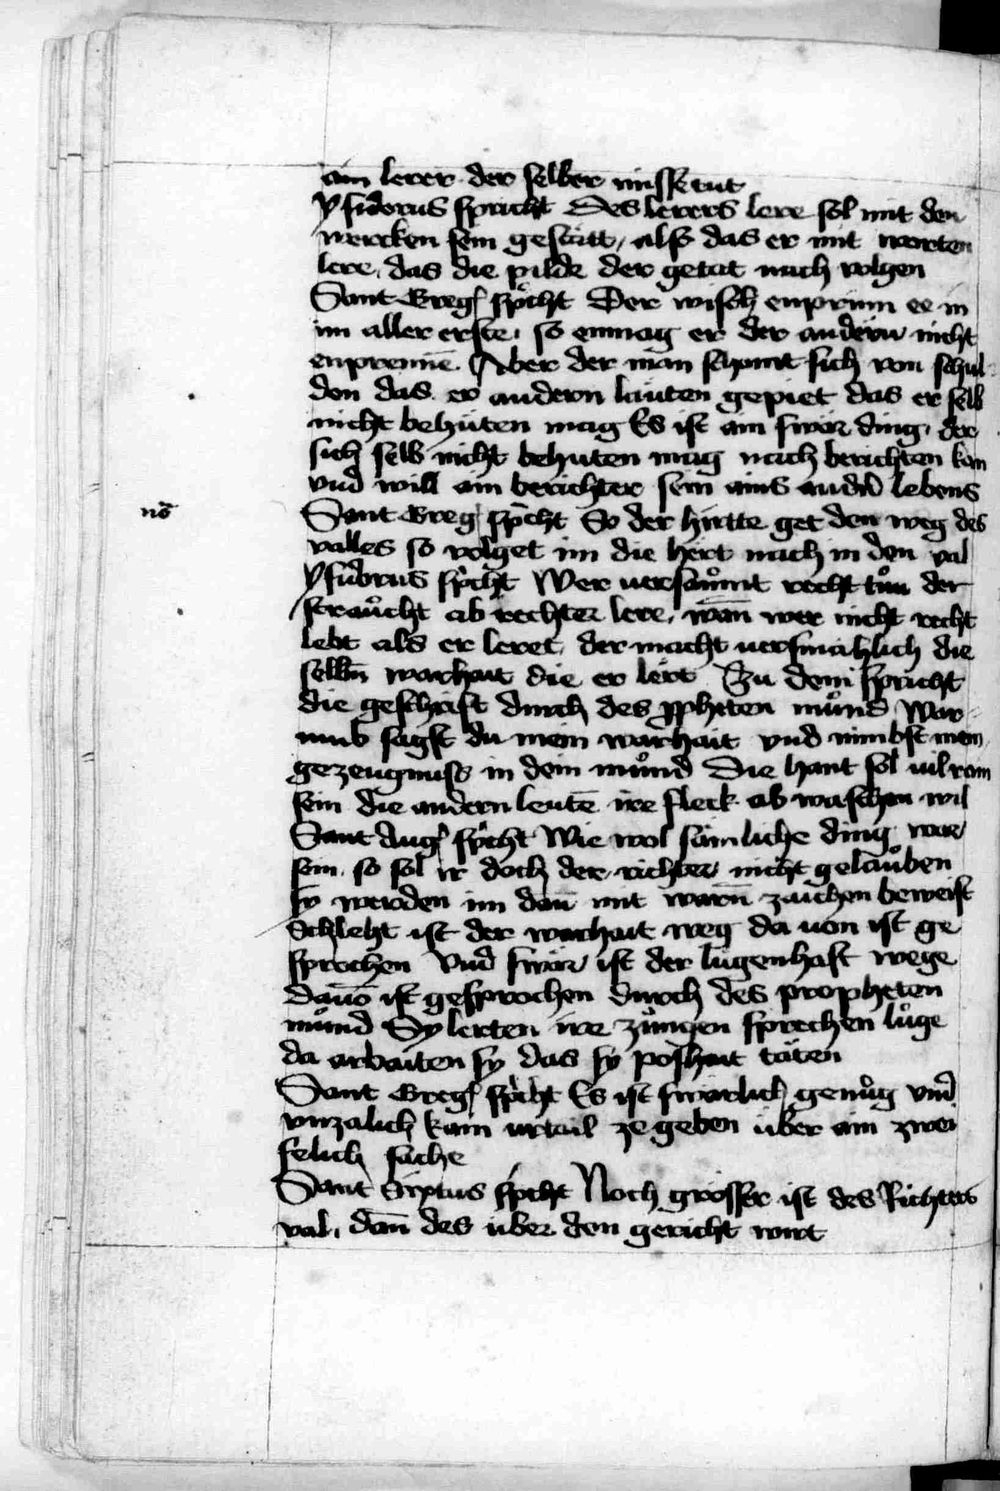 ain lerer der selber missetut
Ysidorus spricht Des lerers lere sol mit den
wercken sein gestätt, also das er mit worten
lere, das die pilde der getat nach volgen
Sant Greg spͥcht Der wisch enprinn ee in
im aller erste, so enmag er der andern nicht
enprennē. Aber der man schamt sich von schul
den das er andern läuten gepiet das er selb
nicht behüten mag Es ist ain swär ding, der
sich selb nicht behüten mag nach berichten kan
vnd will ain berichter sein ains andn̄ lebens
nō
Sant Greg spͥcht So der hirtte get den weg des
valles so volget im die hert nach in den val
Ysidorus spͥcht Wer versaͧmt recht tůn der
straucht ab rechter lere, wan̄ wer nicht recht
lebt als er leret, der macht versmählich die
selbn̄ warhait die er lert Zu dem spricht
die geschrift durch des ꝓpheten můnd War
umb sagst du mein warhait vnd nimbst mein
gezeugnuss in dein můnd Die hant sol vil rain
sein die andern leutē ire fleck ab waschen wil
Sant Aug spͥcht Wie wol sämliche ding war
sein, so sol ir doch der richter nicht gelauͦben
sy werden im dan̄ mit warn̄ zaichen beweist
Schleht ist der warhait weg da von ist ge
sprochen Vnd swär ist der lugenhaft wege
dauō ist gesprochen durch des propheten
můnd Sy lerten ire zůngen sprechen lůge
da arbaiten sy das sy poshait täten
Sant Greg spͥcht Es ist swärlich genůg vnd
vnzalich kain urtail ze geben über ain zwei
felich sache
Sant Sixtus spͥcht Noch grösser ist des Richters
val, dan̄ des über den gericht wirt